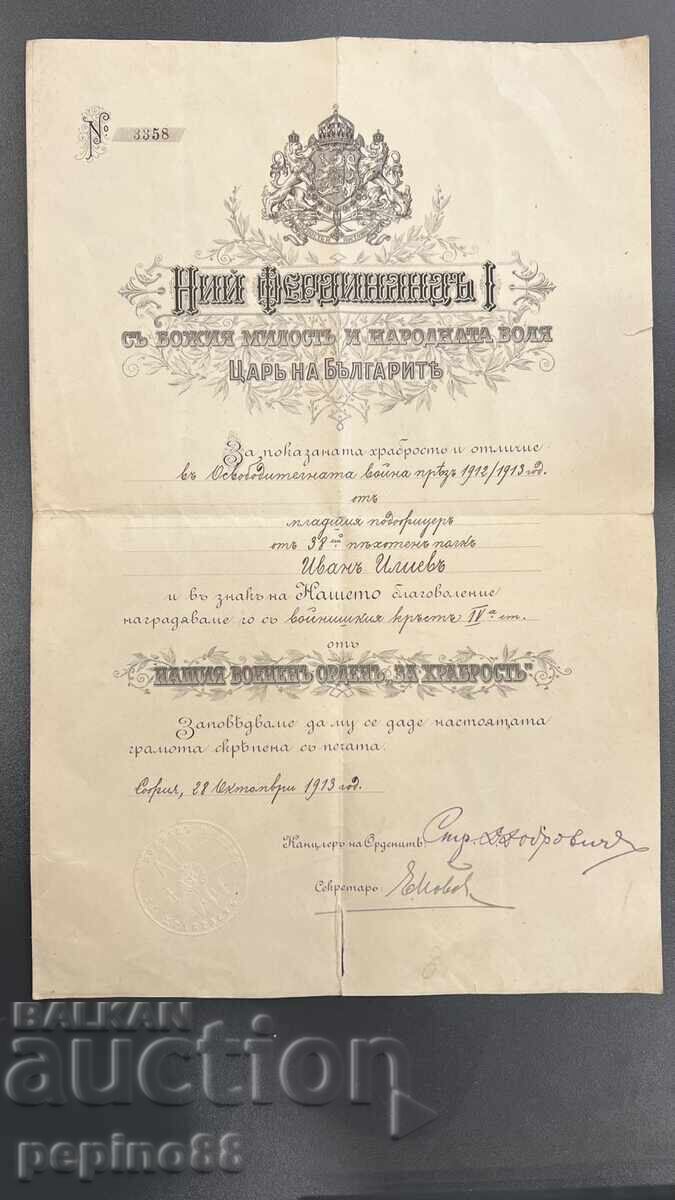 № 3358
Ний Фердинандъ I
съ Божия милость и народната воля
Царь на Българитѣ
За показаната храбрость и отличие
въ Освободителната война прѣзъ 1912/1913 год.
отъ
младшия подофицеръ
отъ 38ий пѣхотенъ полкъ
Иванъ Илиевъ
и въ знакъ на Нашето благоволение
награждаваме го съ войнишкия кръстъ IVа ст.
отъ
Нашия военен орденъ „За храбрость“
Заповѣдваме да му се даде настоящата
грамота скрѣпена съ печата.
София, 28 Октомври 1913 год.
Канцлеръ на Орденитѣ: Стр. Добровичъ
Секретарь:
BALKAN
auction
pepino88